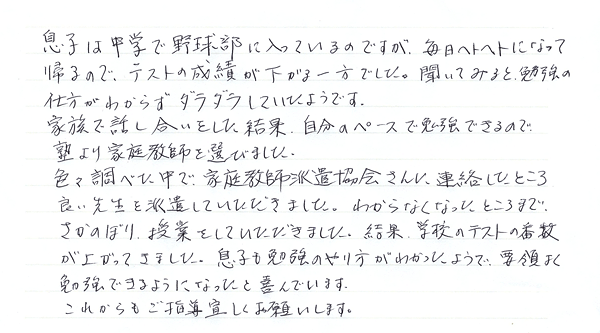 息子は中学で野球部に入っているのですが、毎日ヘトヘトになって
帰るので、テストの成績が下がる一方でした。聞いてみると、勉強の
仕方がわからずダラダラしていたようです。
家族で話し合いをした結果、自分のペースで勉強できるので
塾より家庭教師を選びました。
色々調べた中で、家庭教師派遣協会さんに連絡したところ
良い先生を派遣していただきました。わからなくなったところまで、
さかのぼり、授業をしていただきました。結果、学校のテストの番数
が上がってきました。息子も勉強のやり方がわかったようで、要領よく
勉強できるようになったと喜んでいます。
これからもご指導宜しくお願いします。